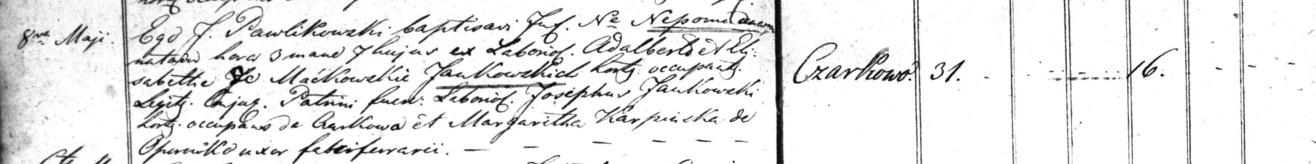 8va Maji. Ego J. Pawlikowski baptisavi Inf. Ne Nepomucenum
natam hora 3 mane 7 hujus ex Laborios. Adalberto et Eli-
sabetha de Maćkowskie Jankowskich hort. occupant.
Legitq. Conjug. Patrini fuer. Laborios. Josephus Jankowski
hort. occupans de Czarkowa et Margaretha Karpinska de
uxor fabri ferrarii.
Czarkowo. 31. 16.